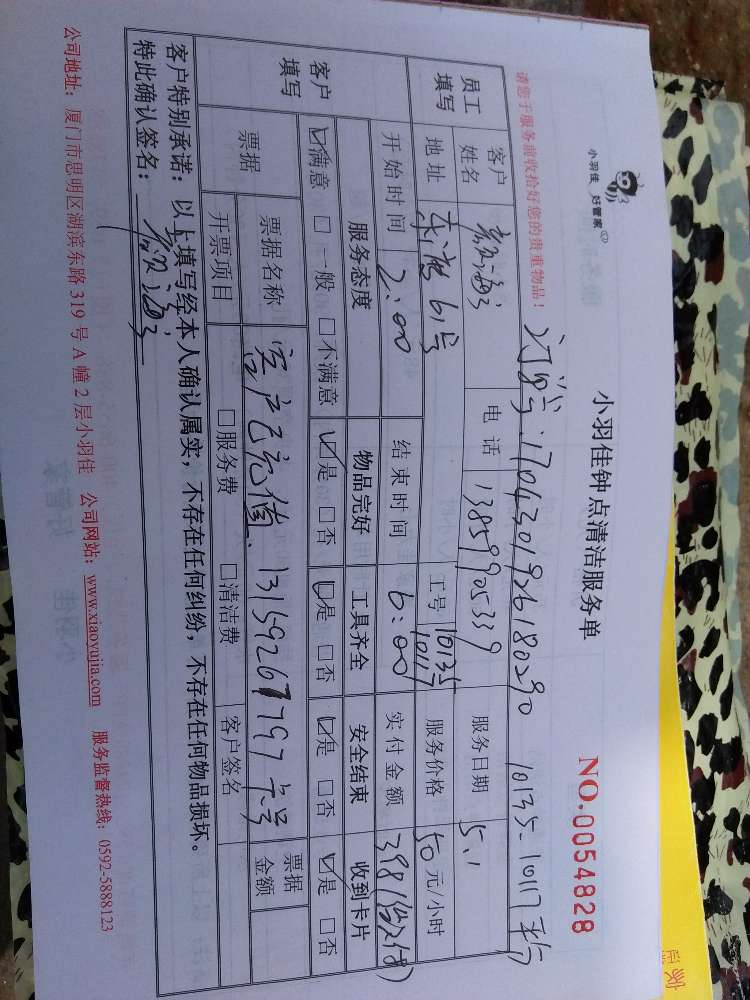 小羽佳 好管家
小羽佳钟点清洁服务单
NO.0054828
请您于服务前收拾好您的贵重物品!
:1704301926180290 10135-10117
员工填写 客户姓名 电话 13859905339 服务日期 5.1
地址 61号 工号 10135 10117 服务价格 50元/小时
开始时间 2:00 结束时间 6:00 实付金额 398
客户填写 服务态度 物品完好 工具齐全 安全结束 收到卡片
☑满意 □一般 □不满意 ☑是 □否 ☑是 □否 ☑是 □否 ☑是 □否
票据 票据名称 客户已充值. 13159267797卡号 票据金额
开票项目 □服务费 □清洁费 客户签名
客户特别承诺:以上填写经本人确认属实,不存在任何纠纷,不存在任何物品损坏。
特此确认签名:
公司地址:厦门市思明区湖滨东路319号A幢2层小羽佳 公司网站:www.xiaoyujia.com 服务监督热线:0592-5888123